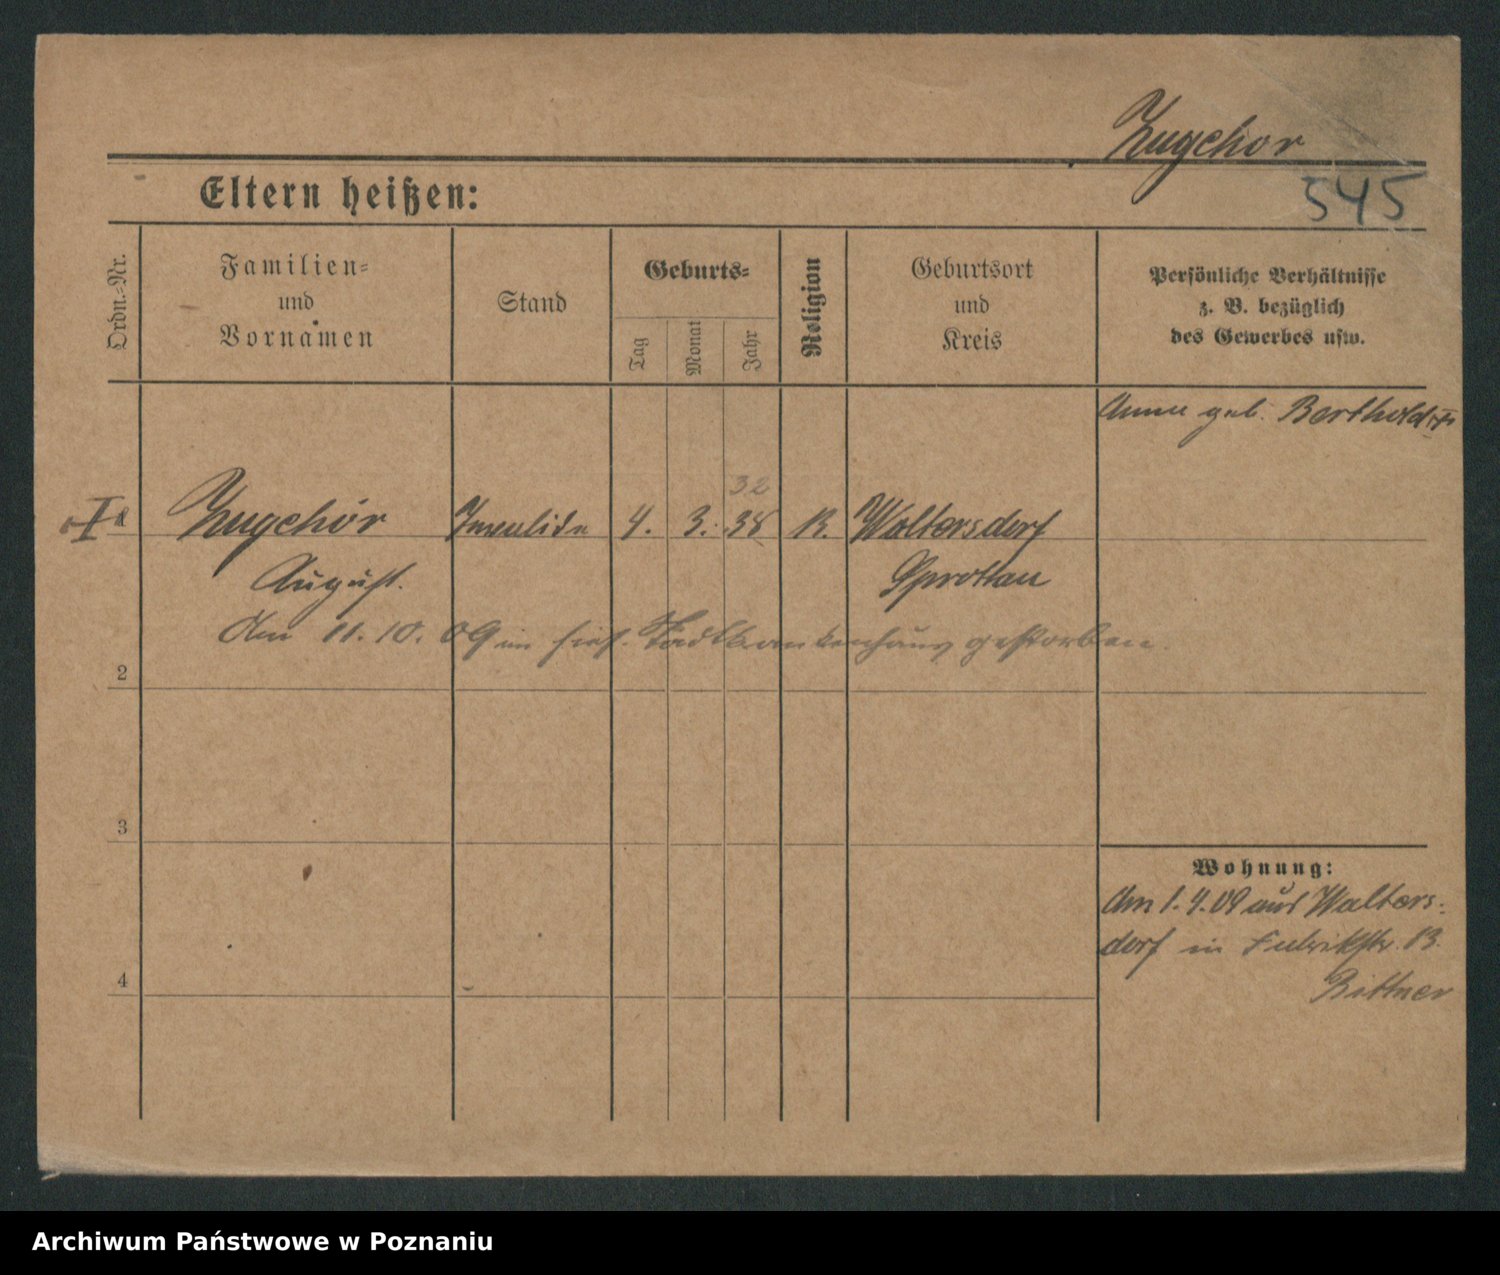 Zugehör
545
Eltern heißen:
Ordn.-Nr.
Familien-
und
Vornamen
Stand
Geburts-
Tag
Monat
Jahr
Religion
Geburtsort
und
Kreis
Persönliche Verhältnisse
z. B. bezüglich
des Gewerbes usw.
geb. Berthold
32
I Zugehör Invalide 4. 3. 38 Waltersdorf
August. Sprottau
Am 11. 10. 09 im hies. Stadtkrankenhaus gestorben.
2
3
Wohnung:
Am 1. 4. 09 aus Walters-
dorf in Fabrikstr. 13.
4
Bittner
Archiwum Państwowe w Poznaniu